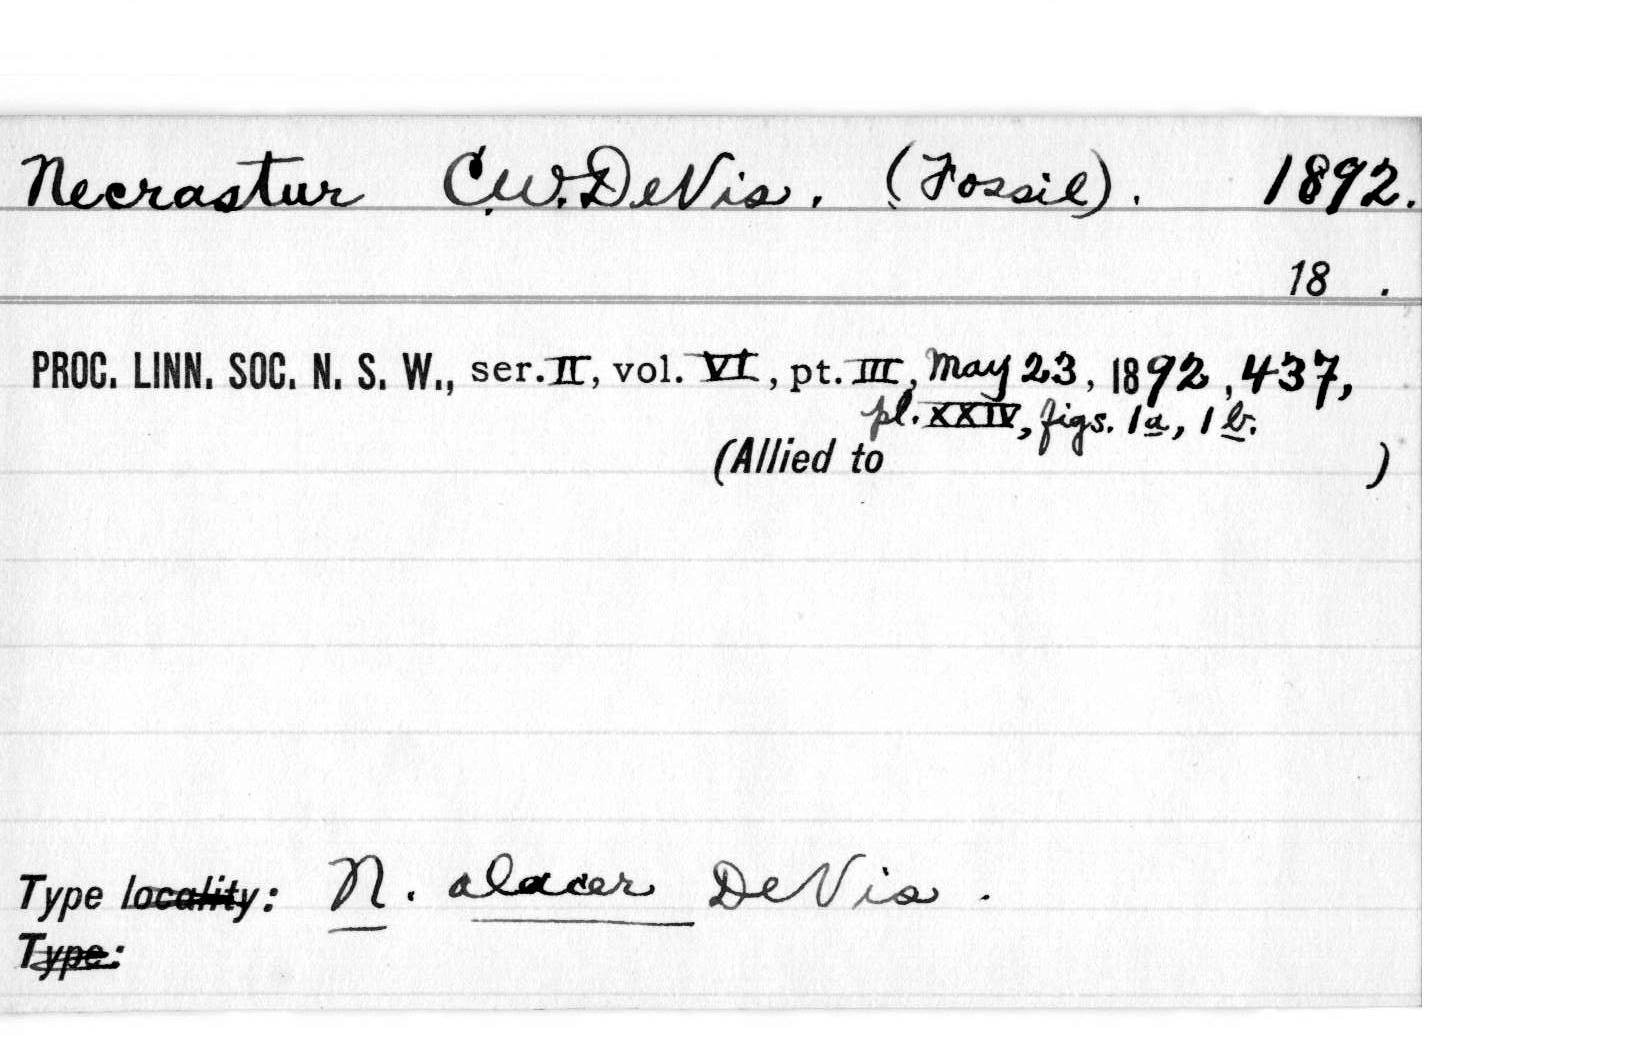 Necrastur C.W. DeVis. (Fossil). 1892.
18 .
PROC. LINN. SOC. N. S. W., ser. II, vol. VI, pt. III, May 23, 1892, 437,
pl. XXIV, figs. 1a, 1b.
(Allied to )
Type locality: N. alacer DeVis.
Type: